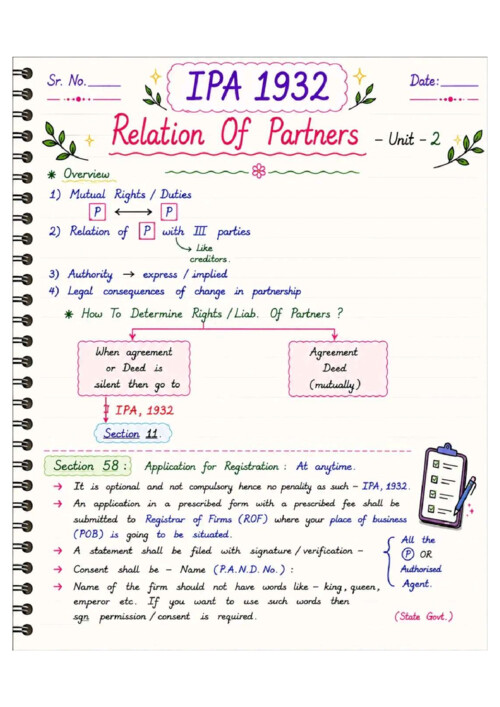 Sr. No.
IPA 1932
Date:
Relation Of Partners - Unit - 2
* Overview
1) Mutual Rights / Duties
P ⟷ P
2) Relation of P with III parties
↳ Like
creditors.
3) Authority → express / implied
4) Legal consequences of change in partnership
* How To Determine Rights / Liab. Of Partners ?
When agreement
or Deed is
silent then go to
Agreement
Deed
(mutually)
IPA, 1932
Section 11.
Section 58 : Application for Registration : At anytime.
→ It is optional and not compulsory hence no penality as such - IPA, 1932.
→ An application in a prescribed form with a prescribed fee shall be
submitted to Registrar of Firms (ROF) where your place of business
(POB) is going to be situated.
→ A statement shall be filed with signature / verification -
→ Consent shall be - Name (P.A.N.D. No.) :
All the
P OR
Authorised
Agent.
→ Name of the firm should not have words like - king, queen,
emperor etc. If you want to use such words then
sgn permission / consent is required.
(State Govt.)